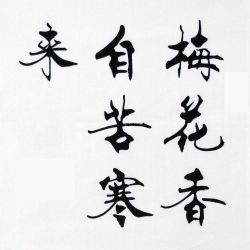 梅花香
自苦寒
来